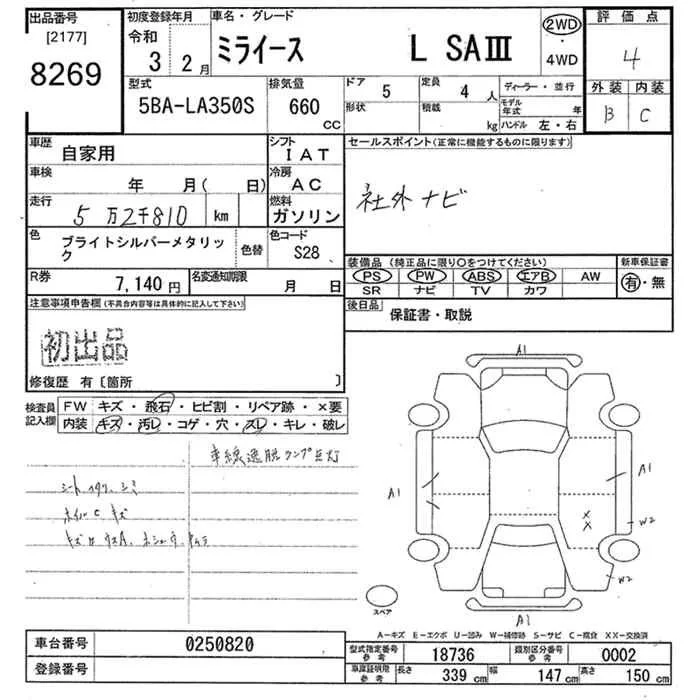 出品番号
[2177]
8269
初度登録年月
令和
3 2月
車名・グレード
ミライース L SAⅢ
2WD
・
4WD
評価点
4
外装 内装
B C
型式
5BA-LA350S
排気量
660 CC
ドア 5
形状
定員 4 人
積載 kg
ディーラー・並行
モデル年式 年
ハンドル 左・右
車歴 自家用
シフト IAT
車検 年 月( 日)
冷房 AC
走行 5万2千810 km
燃料 ガソリン
色 ブライトシルバーメタリック
色替
色コード S28
R券 7,140円
名変通知期限 月 日
セールスポイント(正常に機能するものに限ります)
社外ナビ
装備品(純正品に限り○をつけてください)
PS PW ABS エアB AW
SR ナビ TV カワ
新車保証書
有・無
後日品 保証書・取説
注意事項申告欄(不具合内容等は具体的に記入して下さい)
初出品
修復歴 有〔箇所 〕
検査員記入欄
FW キズ・飛石・ヒビ割・リペア跡・×要
内装 キズ・汚レ・コゲ・穴・スレ・キレ・破レ
車線逸脱ランプ点灯
シート シミ
ホイルC キズ
A1
A1
A1
A1
W2
W2
×
×
スペア
A-キズ E-エクボ U-凹み W-補修跡 S-サビ C-腐食 XX-交換済
車台番号 0250820
登録番号
型式指定番号 参考 18736
類別区分番号 参考 0002
車庫証明限 参考 長さ 339 cm 幅 147 cm 高さ 150 cm